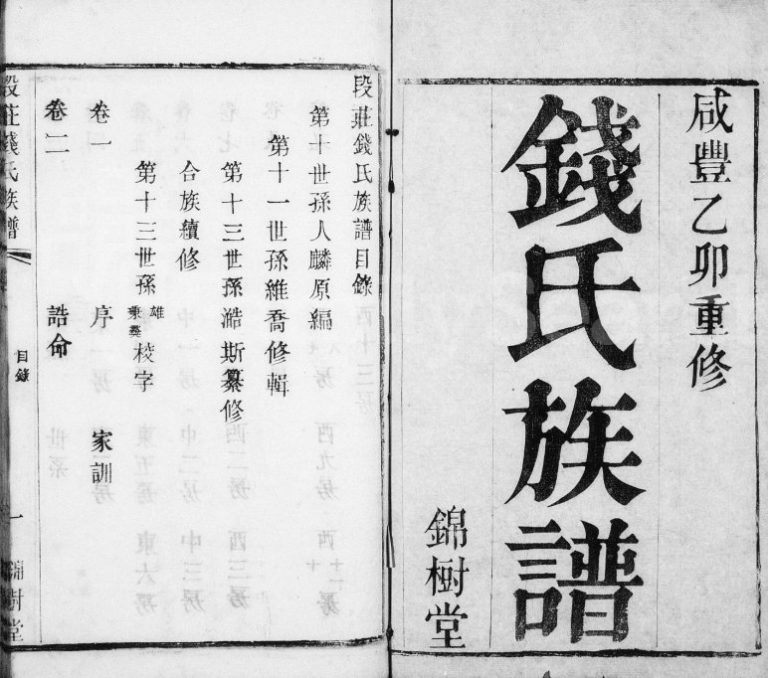 咸豐乙卯重修
錢氏族譜
錦樹堂
段莊錢氏族譜目錄
第十世孫人麟原編
第十一世孫維喬修輯
第十三世孫澔斯纂修
合族續修
第十三世孫
雄
秉奠
校字
卷一 序 家訓
卷二 誥命
段莊錢氏族譜
目錄
一
錦樹堂